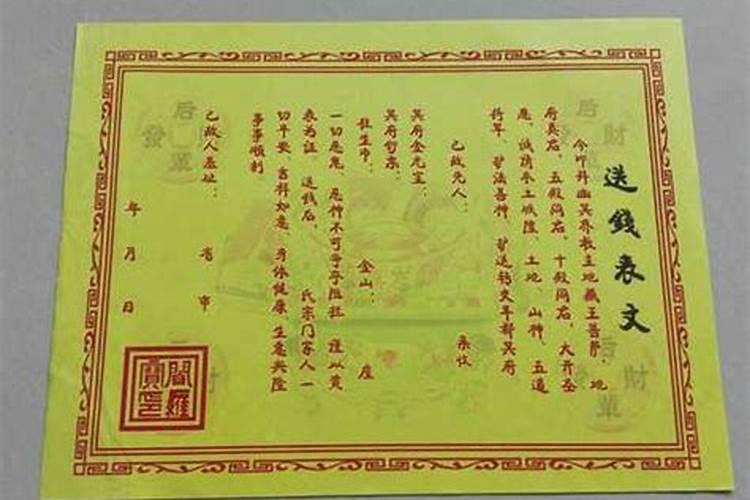 送錢表文
今叩拜幽冥界教主地藏王菩萨、地
府 五殿阎君、十殿阎君、大齐圣
诚请本土城隍、土地、山神、五道
将军、护法善神、护送钱文车辆冥府
已故先人： 亲收
冥府金元宝： 金山： 座
冥府
一切恶鬼、恶神不可争夺阻拦 谨以黄
表为证，送钱后， 氏宗门家人一
切平安、吉祥如意、身体健康 生意兴隆
事事顺利
已故人墓址： 省 市
年 月 日
閻羅寶印